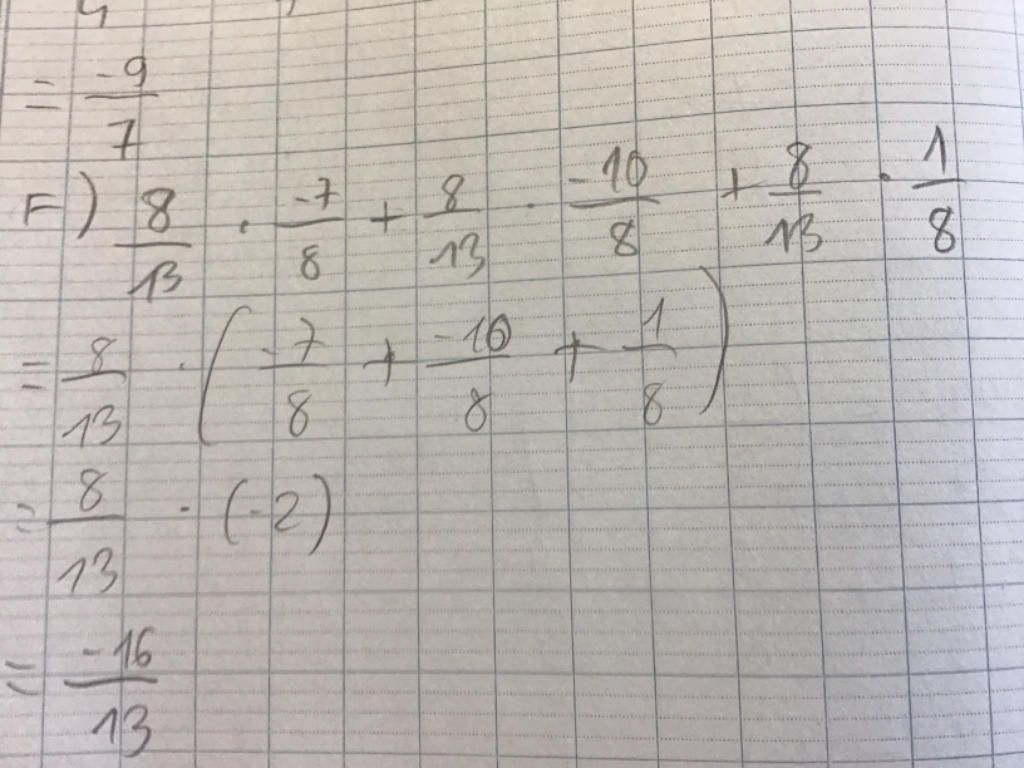 4
= -9/7
F) 8/13 · -7/8 + 8/13 · -10/8 + 8/13 · 1/8
= 8/13 · (-7/8 + -10/8 + 1/8)
= 8/13 · (-2)
= -16/13